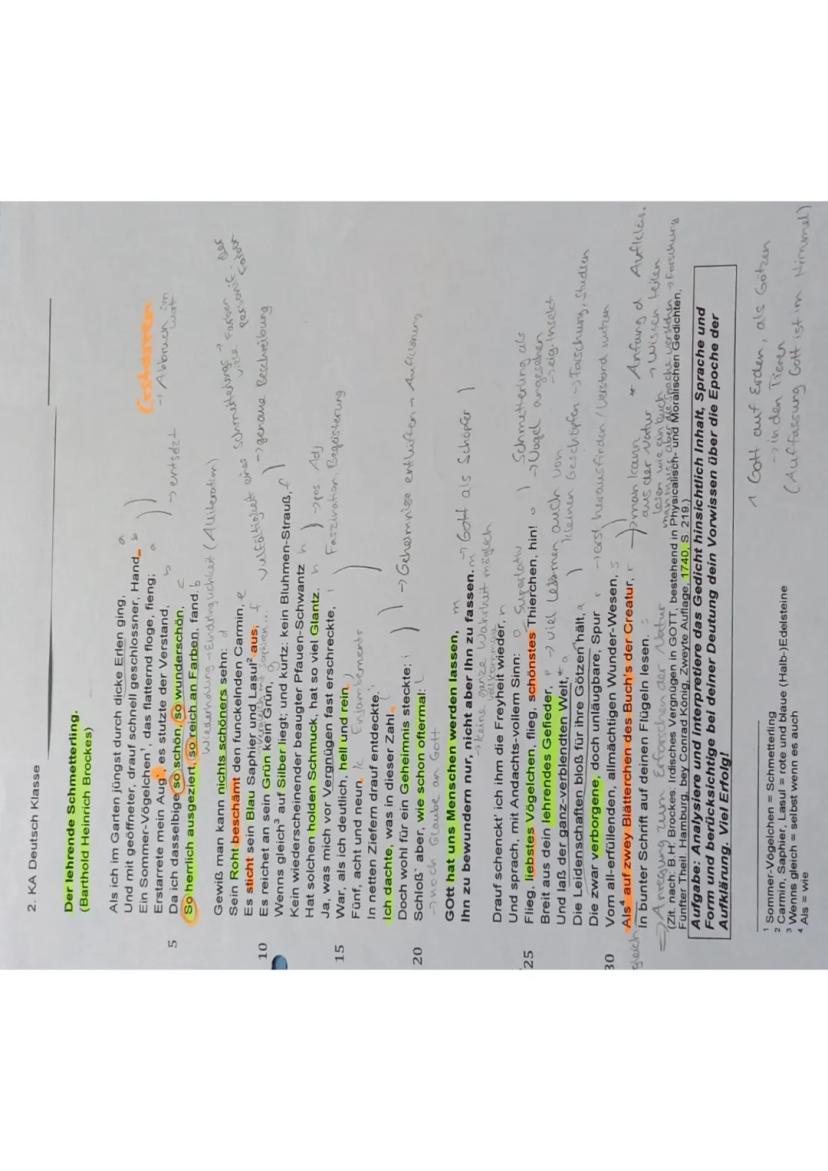 2. KA Deutsch Klasse
Der lehrende Schmetterling.
(Barthold Heinrich Brockes)
Als ich im Garten jüngst durch dicke Erlen ging, a
Und mit geöffneter, drauf schnell geschlossner, Hand b
Ein Sommer-Vögelchen¹, das flatternd floge, fieng; a
Erstarrete mein Aug', es stutzte der Verstand, b → entsetzt
5 Da ich dasselbige so schön, so wunderschön, c
So herrlich ausgeziert, so reich an Farben, fand. b
Wiederholung → Eindringlichkeit (Alliteration)
Gewiß man kann nichts schöners sehn: d
Sein Roht beschämt den funckelnden Carmin, e
Es sticht sein Blau Saphier und Lasul² aus; f
10 Es reichet an sein Grün kein Grün, g → genaue Beschreibung
Wenns gleich³ auf Silber liegt; und kurtz: kein Bluhmen-Strauß, f
Kein wiederscheinender beaugter Pfauen-Schwantz h
Hat solchen holden Schmuck, hat so viel Glantz. h → pos Adj
Ja, was mich vor Vergnügen fast erschreckte, i Faszination Begeisterung
15 War, als ich deutlich, hell und rein, j
Fünf, acht und neun, k Enjambements
In netten Ziefern drauf entdeckte. i
Ich dachte, was in dieser Zahl
Doch wohl für ein Geheimnis steckte; i → Geheimnise entlüften → Aufklärung
20 Schloß' aber, wie schon oftermal: l
→ noch Glaube an Gott
GOtt hat uns Menschen werden lassen, m
Ihn zu bewundern nur, nicht aber Ihn zu fassen. m → Gott als Schöpfer
→ keine ganze Wahrheit möglich
Drauf schenckt' ich ihm die Freyheit wieder, n
Und sprach, mit Andachts-vollem Sinn: o Superlativ
25 Flieg, liebstes Vögelchen, flieg, schönstes Thierchen, hin! o Schmetterling als → Vogel angesehen
Breit aus dein lehrendes Gefieder, → eig. Insekt
Und laß der ganz-verblendten Welt, → viel Lernen auch von
Die Leidenschaften bloß für ihre Götzen hält, kleinen Geschöpfen → Forschung, Studien
Die zwar verborgene, doch unläugbare, Spur r → erst herausfinden / Verstand nutzen
30 Vom all-erfüllenden, allmächtigen Wunder-Wesen, s
Als⁴ auf zwey Blätterchen des Buch's der Creatur, r → man kann aus der Natur lesen wie ein Buch
In bunter Schrift auf deinen Flügeln lesen. s
* Anfang d Aufklär.
→ Wissen teilen
⇒ Anregung zum Erforschen der Natur
(Zit. nach: B.H. Brockes: Irdisches Vergnügen in GOTT, bestehend in Physicalisch- und Moralischen Gedichten, Fünfter Theil. Hamburg, bey Conrad König, Zweyte Auflage, 1740, S. 219.)
Aufgabe: Analysiere und Interpretiere das Gedicht hinsichtlich Inhalt, Sprache und
Form und berücksichtige bei deiner Deutung dein Vorwissen über die Epoche der
Aufklärung. Viel Erfolg!
¹ Sommer-Vögelchen = Schmetterling
² Carmin, Saphier, Lasul = rote und blaue (Halb-)Edelsteine
³ Wenns gleich = selbst wenn es auch
⁴ Als = wie
1 Gott auf Erden, als Götzen
→ in den Tieren
(Auffassung Gott ist im Himmel)